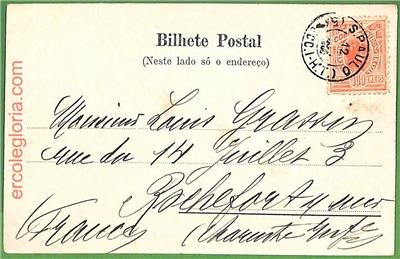 Bilhete Postal
(Neste lado só o endereço)
S. PAULO
12
100 REIS
Monsieur Louis
rue du 14 Juillet 3
Rochefort s/ mer
Charente Infre
(France)
ercolegloria.com